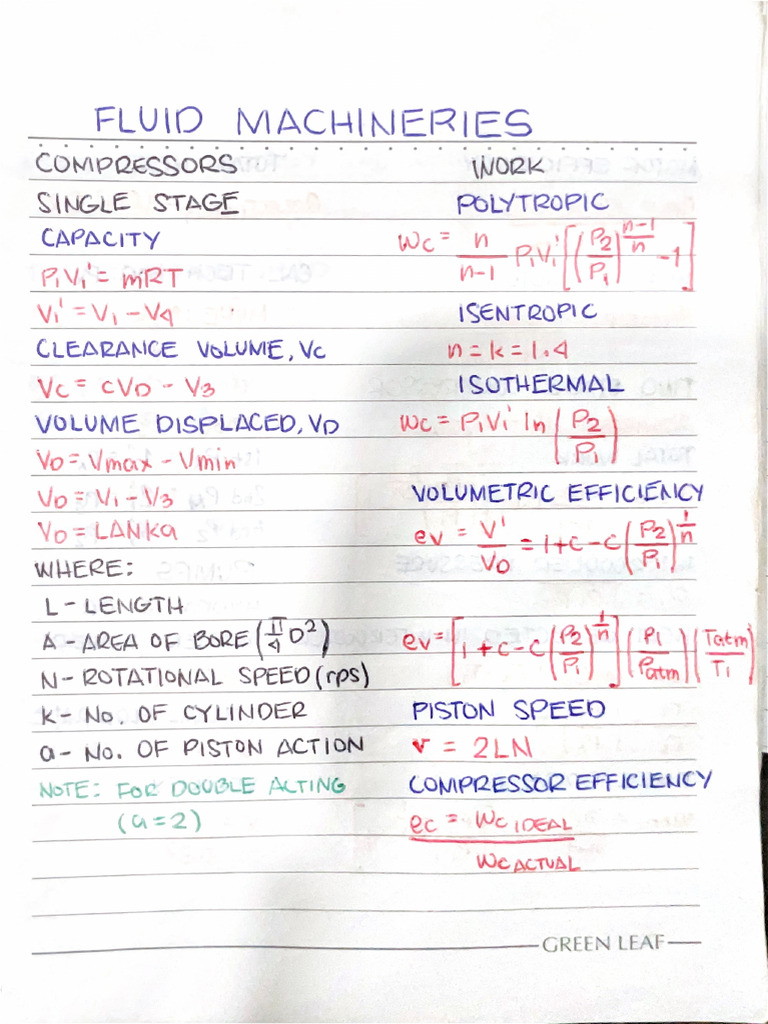 FLUID MACHINERIES
COMPRESSORS
SINGLE STAGE
CAPACITY
P₁V₁' = mRT
V₁' = V₁ - V₄
CLEARANCE VOLUME, Vc
Vc = CVD - V₃
VOLUME DISPLACED, VD
VD = Vmax - Vmin
VD = V₁ - V₃
VD = LANKa
WHERE:
L - LENGTH
A - AREA OF BORE (π/4 D²)
N - ROTATIONAL SPEED (rps)
K - NO. OF CYLINDER
a - NO. OF PISTON ACTION
NOTE: FOR DOUBLE ACTING
(a = 2)
WORK
POLYTROPIC
Wc = n/(n-1) P₁V₁' [(P₂/P₁)^((n-1)/n) - 1]
ISENTROPIC
n = k = 1.4
ISOTHERMAL
Wc = P₁V₁' ln (P₂/P₁)
VOLUMETRIC EFFICIENCY
ev = V'/VD = 1 + C - C (P₂/P₁)^(1/n)
ev = [1 + C - C (P₂/P₁)^(1/n)] (P₁/Patm) (Tatm/T₁)
PISTON SPEED
v = 2LN
COMPRESSOR EFFICIENCY
ec = Wc IDEAL
Wc ACTUAL
GREEN LEAF